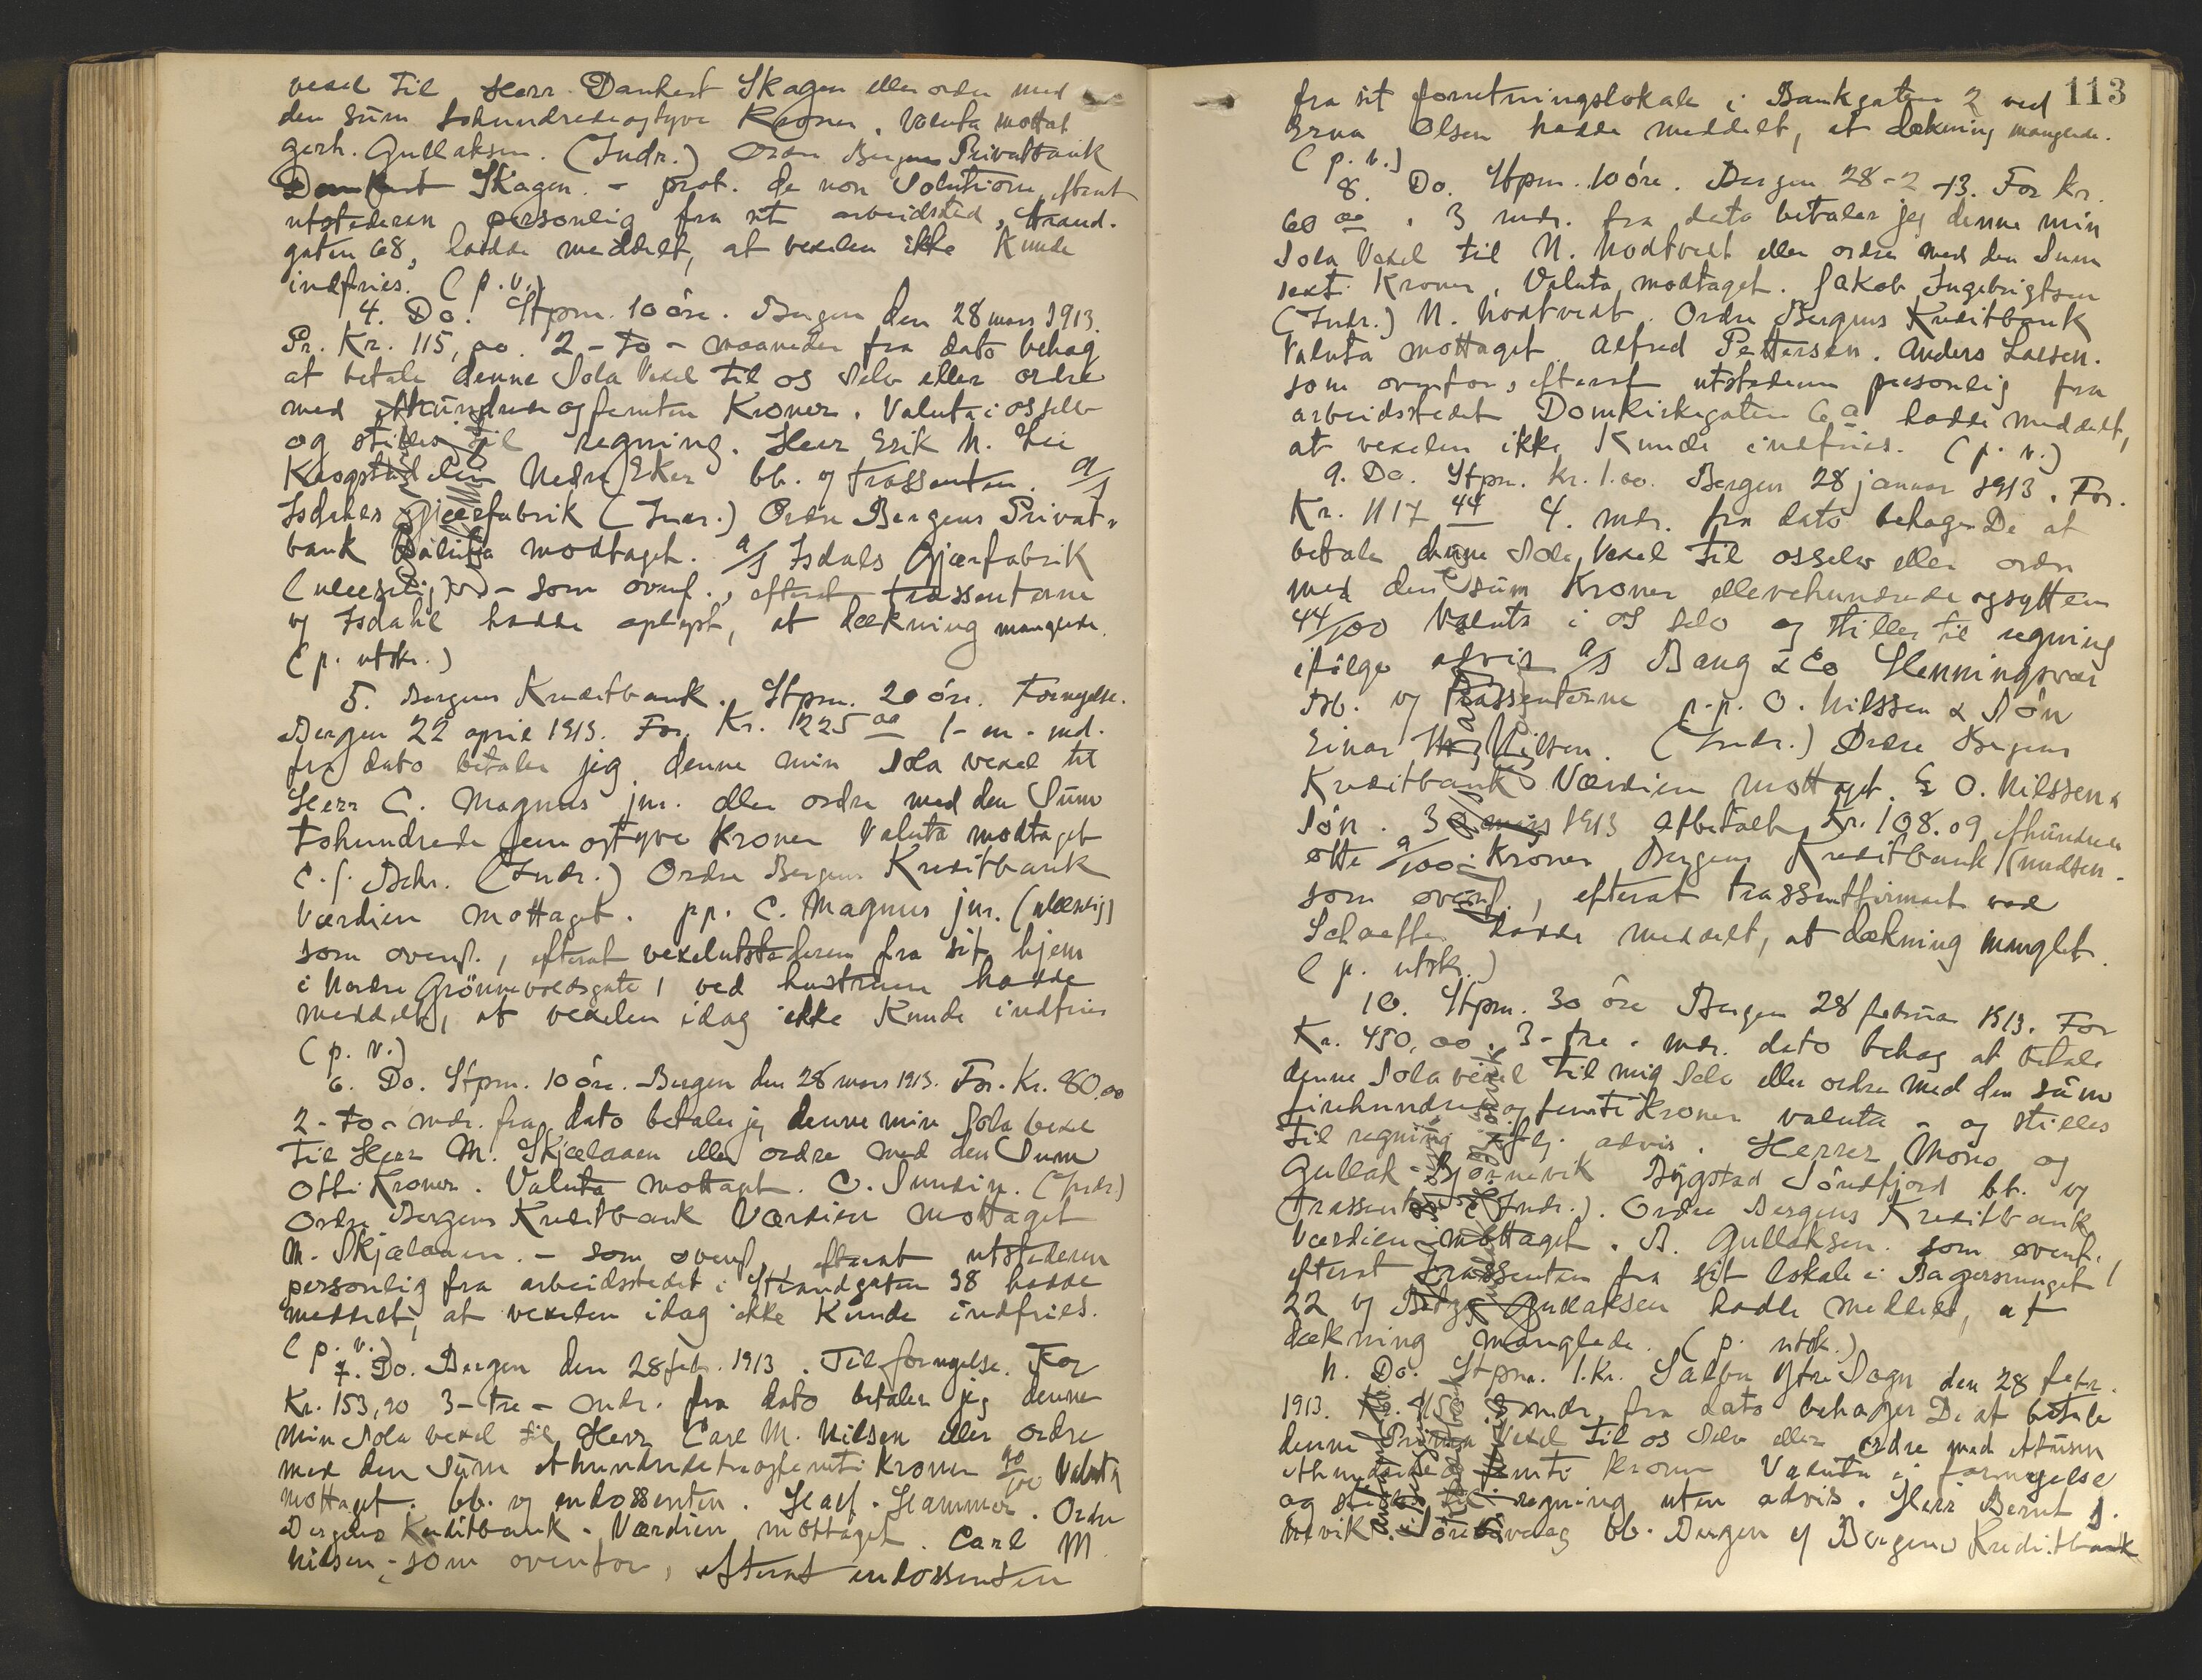 vexel til Herr Dankert Skagen eller ordre med
den Sum tohundredeogtyve Kroner. Valuta mottat
Gerh. Gullaksen. (Indr.) Ordre Bergens Privatbank
Dankert Skagen. - prot. de non Solutione, efterat
utstederen personlig fra sit arbeidssted, Strand-
gaten 68, hadde meddelt, at vexelen ikke Kunde
indfries. (p.v.)
4. Do. Stpm. 10 öre. Bergen den 28 mars 1913.
Pr. Kr. 115,00. 2 - to - maaneder fra dato behag
at betale denne Sola Vexel til os selv eller ordre
med ethundrede og femten Kroner. Valuta i os selv
og stilles til regning. Herr Erik N. Lie
Krogstadelven Nedre Eker bb. og trassenten. A/S
Isdahls Gjærfabrik (Indr.) Ordre Bergens Privat-
bank Valuta modtaget. A/S Isdals Gjærfabrik
(ulæselig) - som ovenf., efterat trassenterne
v/ Isdahl hadde oplyst, at dækning manglede.
(p. utskr.)
5. Bergens Kreditbank. Stpm. 20 öre. Fornyelse.
Bergen 22 april 1913. For Kr. 225 00 1 - en - md.
fra dato betaler jeg denne min Sola vexel til
Herr C. Magnus jnr. eller ordre med den Sum
tohundrede fem og tyve Kroner Valuta modtaget
C. J. Behr. (Indr.) Ordre Bergens Kreditbank
Værdien mottaget. pp. C. Magnus jnr. (ulæselig)
som ovenf., efterat vexelutstederen fra sit hjem
i Nordre Grönnevoldsgate 1 ved hustruen hadde
meddelt, at vexelen idag ikke Kunde indfries
(p. v.)
6. Do. Stpm. 10 öre. Bergen den 28 mars 1913. For Kr. 80,00
2 - to - mdr. fra dato betaler jeg denne min Sola vexel
til Herr M. Skjælaaen eller ordre med den Sum
Otti Kroner. Valuta mottaget. O. Sundin. (Indr.)
Ordre Bergens Kreditbank Værdien mottaget
M. Skjælaaen. - som ovenf. efterat utstederen
personlig fra arbeidsstedet i Strandgaten 98 hadde
meddelt, at vexelen idag ikke Kunde indfries.
(p. v.)
7. Do. Bergen den 28 feb. 1913. Til fornyelse. For
Kr. 153,90 3 - tre - mdr. fra dato betaler jeg denne
min Sola vexel til Herr Carl M. Nilsen eller ordre
med den Sum ethundredetreogfemti Kroner 90/100 Valuta
mottaget. bb. og endossenten. Hammer. Ordre
Bergens Kreditbank. Værdien mottaget. Carl M.
Nilsen - som ovenfor, efterat endossenten
113
fra sit forretningslokale i Bankgaten 2 ved
Erna Olsen hadde meddelt, at dækning manglede.
(p. v.)
8. Do. Stpm. 10 öre. Bergen 28-2-13. For Kr.
60 00. 3 mdr. fra dato betaler jeg denne min
Sola Vexel til N. Nodtvedt eller ordre med den Sum
sexti Kroner. Valuta modtaget. Jakob Ingebrigtsen
(Indr.) N. Nodtvedt. Ordre Bergens Kreditbank
Valuta mottaget. Alfred Pettersen. Anders Larsen.
som ovenfor, efterat utstederen personlig fra
arbeidsstedet Domkirkegaten 6a hadde meddelt,
at vexelen ikke Kunde indfries. (p. v.)
9. Do. Stpm. Kr. 1.00. Bergen 28 januar 1913. For
Kr. 1117 44 4. mdr. fra dato behager De at
betale denne Sola Vexel til osselv eller ordre
med den sum Kroner ellevehundrede og sytten
44/100 Valuta i os selv og stilles til regning
ifölge advis A/S Bang & Co Henningsvær
bb. og trassenterne p.p. O. Nilssen & Sön
Einar Nilsen. (Indr.) Ordre Bergens
Kreditbank Værdien mottaget. O. Nilssen &
Sön. 1913 Afbetalt Kr. 108.09 ethundrede
otte 9/100 Kroner Bergens Kreditbank Knudsen.
som ovenf., efterat trassentfirmaet ved
hadde meddelt, at dækning manglet.
(p. utskr.)
10. Stpm. 30 öre Bergen 28 februar 1913. For
Kr. 450,00. 3 - tre - mdr. dato behag at betale
denne Sola vexel til mig selv eller ordre med den sum
firehundrede og femti Kroner valuta - og stilles
til regning ifölg. advis. Herrer Mons og
Gullak Bjørnevik Bygstad Söndfjord bb. og
trassenten (Indr.). Ordre Bergens Kreditbank
Værdien mottaget. B. Gullaksen. som ovenf.,
efterat trassenten fra sit lokale i Bagersmuget
22 v/ Gullaksen hadde meddelt, at
dækning manglede. (p. utsk.)
11. Do. Stpm. 1. Kr. Salbu Ytre Sogn den 28 febr.
1913. 3 mdr. fra dato behager De at betale
denne Prima Vexel til os selv eller ordre med
femti Kroner Valuta fornyelse
og stilles til regning uten advis. Herr Bernt J.
bb. Bergen v/ Bergens Kreditbank